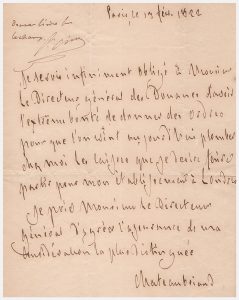 Paris, ce 19 févr. 1822
Je serois infiniment obligé à Monsieur
Le Directeur général des Douanes d'avoir
l'extrême bonté de donner des ordres
pour que l'on vint aujourd'hui plomber
chez moi les caisses que je desire faire
partir pour mon établissement à Londres
Je prie Monsieur le Directeur
général d'agréer l'assurance de ma
considération la plus distinguée
Chateaubriand